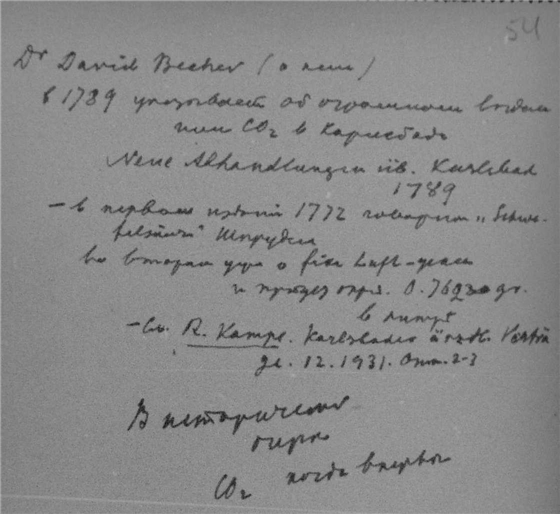 54
Dr David Becher (о нем)
в 1789 указывает об огромном
CO₂ в Карлсбаде
Neue Abhandlungen üb. Karlsbad
1789
— в первом издании 1772 говорит „Schwe-
felsäure" Шпруделя
во втором уже о fixe Luft-
и
в литре
— См. R. Kampe. Karlsbader ärztl. Vorträ
ge. 12. 1931. Отт. 2-3
В исторический
очерк
CO₂ когда впервые